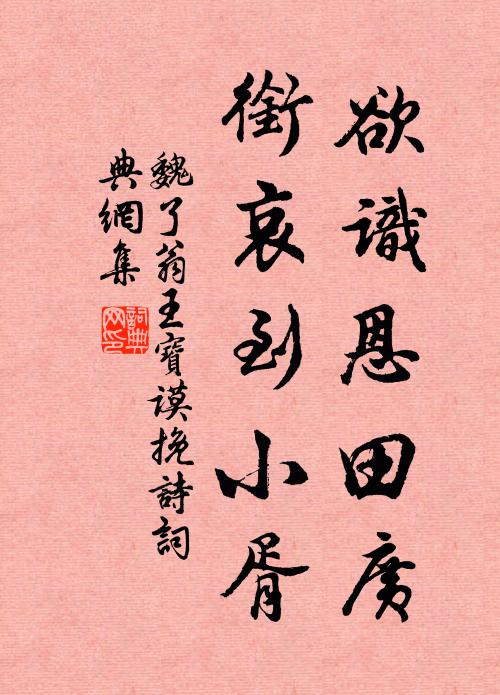 欲識恩田廣
銜哀到小胥
魏了翁王寶謨挽詩詞
典網集
詞典
网印